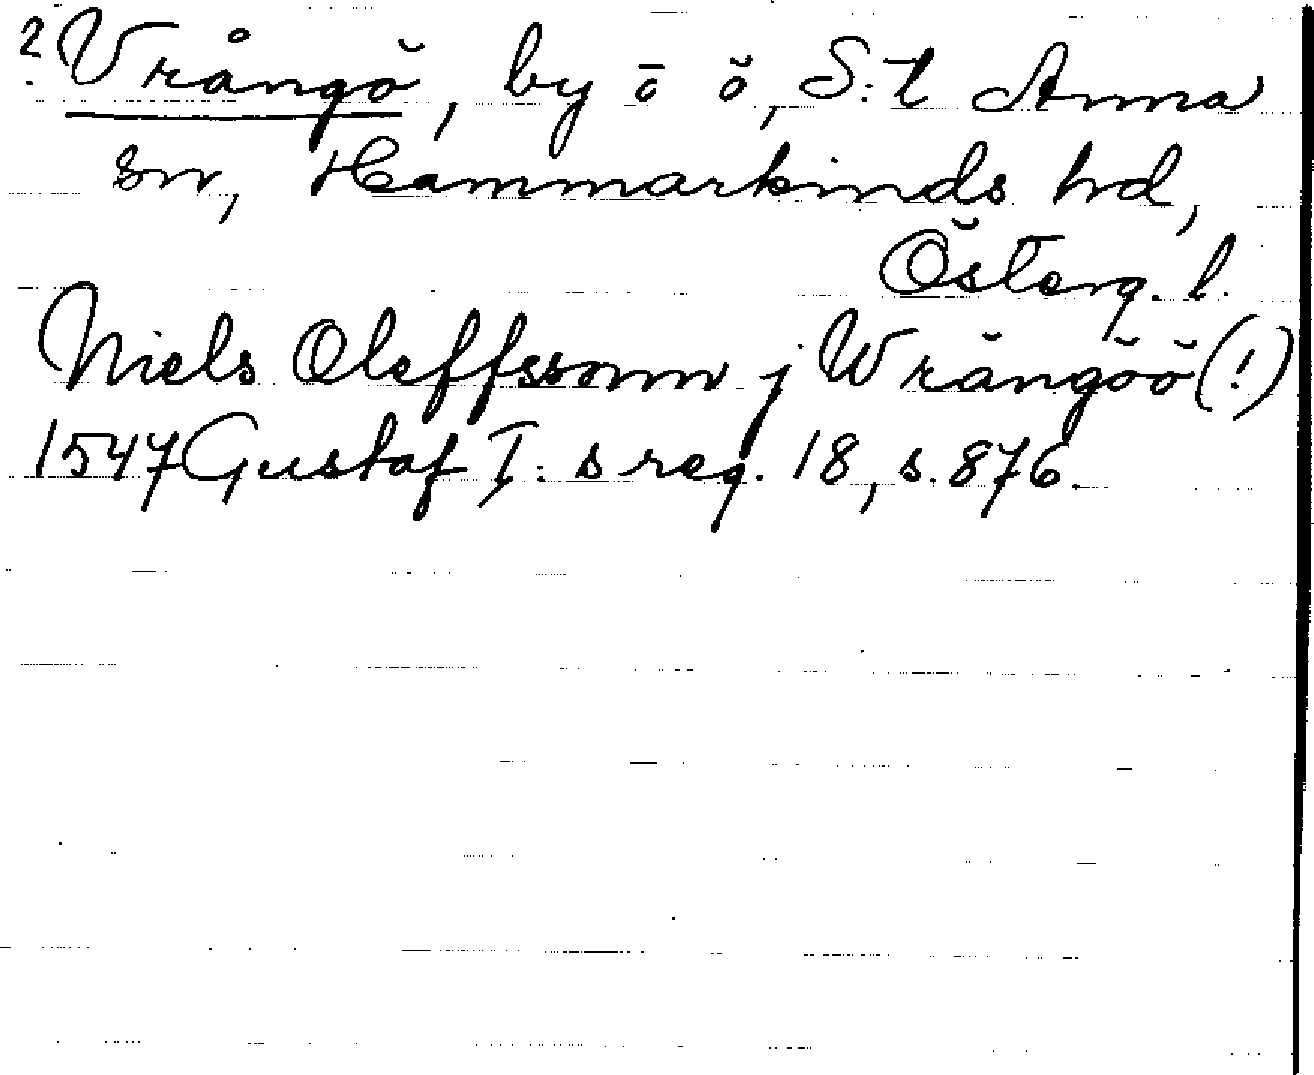 ? Vrångö, by o ö, S:t Anna
sn, Hammarkinds hd,
Österg. l.
Niels Oleffssonn j Wrångöö (!)
1547 Gustaf I:s reg. 18, s. 876.